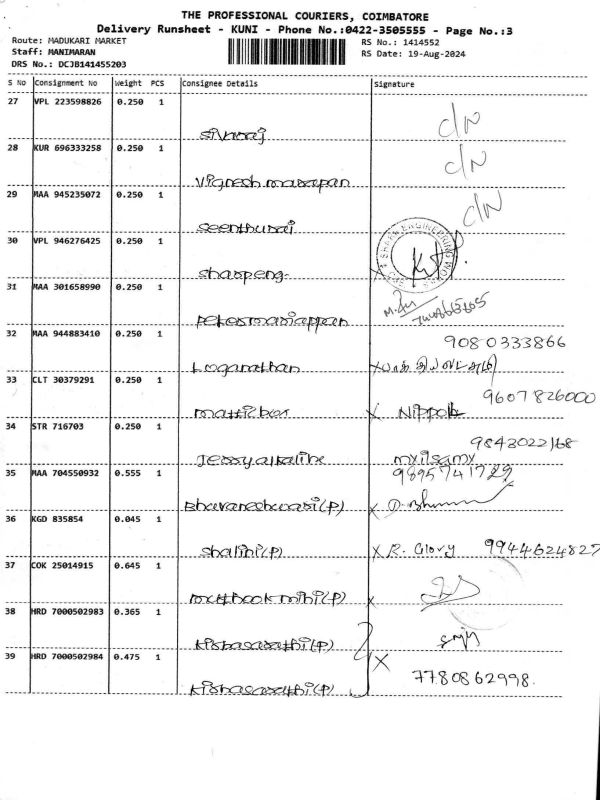 THE PROFESSIONAL COURIERS, COIMBATORE
Delivery Runsheet - KUNI - Phone No.:0422-3505555 - Page No.:3
Route: MADUKARI MARKET
Staff: MANIMARAN
DRS No.: DCJB141455203
RS No.: 1414552
RS Date: 19-Aug-2024
S No Consignment No Weight PCS Consignee Details Signature
27 VPL 223598826 0.250 1
sivaraj D/N
28 KUR 696333258 0.250 1
vignesh masapan D/N
29 MAA 945235072 0.250 1
seenthuraj D/N
30 VPL 946276425 0.250 1
sharpeng
31 MAA 301658990 0.250 1
petermariappan
32 MAA 944883410 0.250 1 9080333866
Loganathan x
33 CLT 30379291 0.250 1 9607826000
x Nippo
34 STR 716703 0.250 1 9843022168
Jessy alkaline mxilsamy
35 MAA 704550932 0.555 1 9895741729
Bhavaneshwari(P) x
36 KGD 835854 0.045 1
Shalini(P) x R. Glory 9944624827
37 COK 25014915 0.645 1
x
38 HRD 7000502983 0.365 1
Kishasarathi(P)
39 HRD 7000502984 0.475 1 x 7780862998.
Kishasarathi(P)